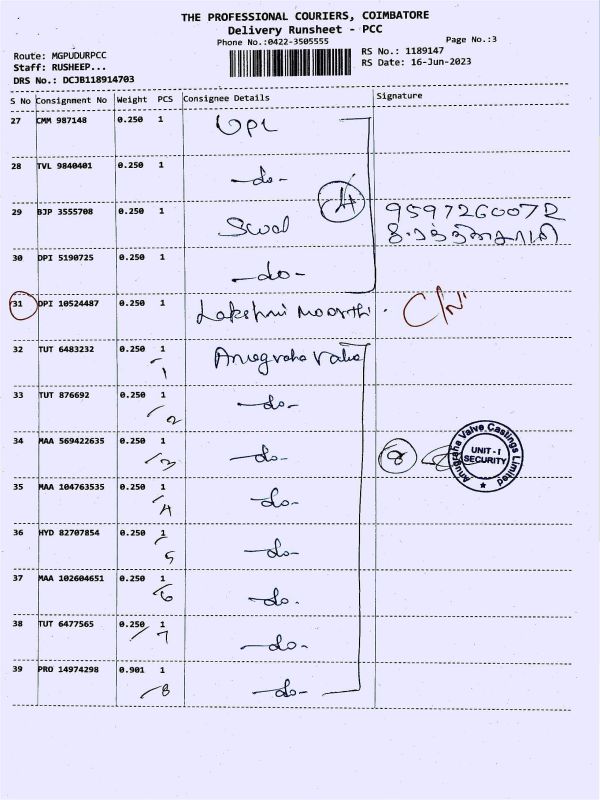 THE PROFESSIONAL COURIERS, COIMBATORE
Delivery Runsheet - PCC
Phone No.:0422-3505555
Page No.:3
Route: MGPUDURPCC
RS No.: 1189147
Staff: RUSHEEP...
RS Date: 16-Jun-2023
DRS No.: DCJB118914703
S No Consignment No Weight PCS Consignee Details Signature
27 CMM 987148 0.250 1 UPL
28 TVL 9840401 0.250 1 -do-
4
29 BJP 3555708 0.250 1 9597260072
30 DPI 5190725 0.250 1 -do-
31 DPI 10524487 0.250 1 Lakshmi Moorthi. C/N
32 TUT 6483232 0.250 1 Anugraha Valve
1
33 TUT 876692 0.250 1 -do-
2
34 MAA 569422635 0.250 1 -do- 8
3
Anugraha Valve Castings Limited
UNIT - I
SECURITY
35 MAA 104763535 0.250 1 -do-
4
36 HYD 82707854 0.250 1 -do-
5
37 MAA 102604651 0.250 1 -do-
6
38 TUT 6477565 0.250 1 -do-
7
39 PRO 14974298 0.901 1 -do-
8